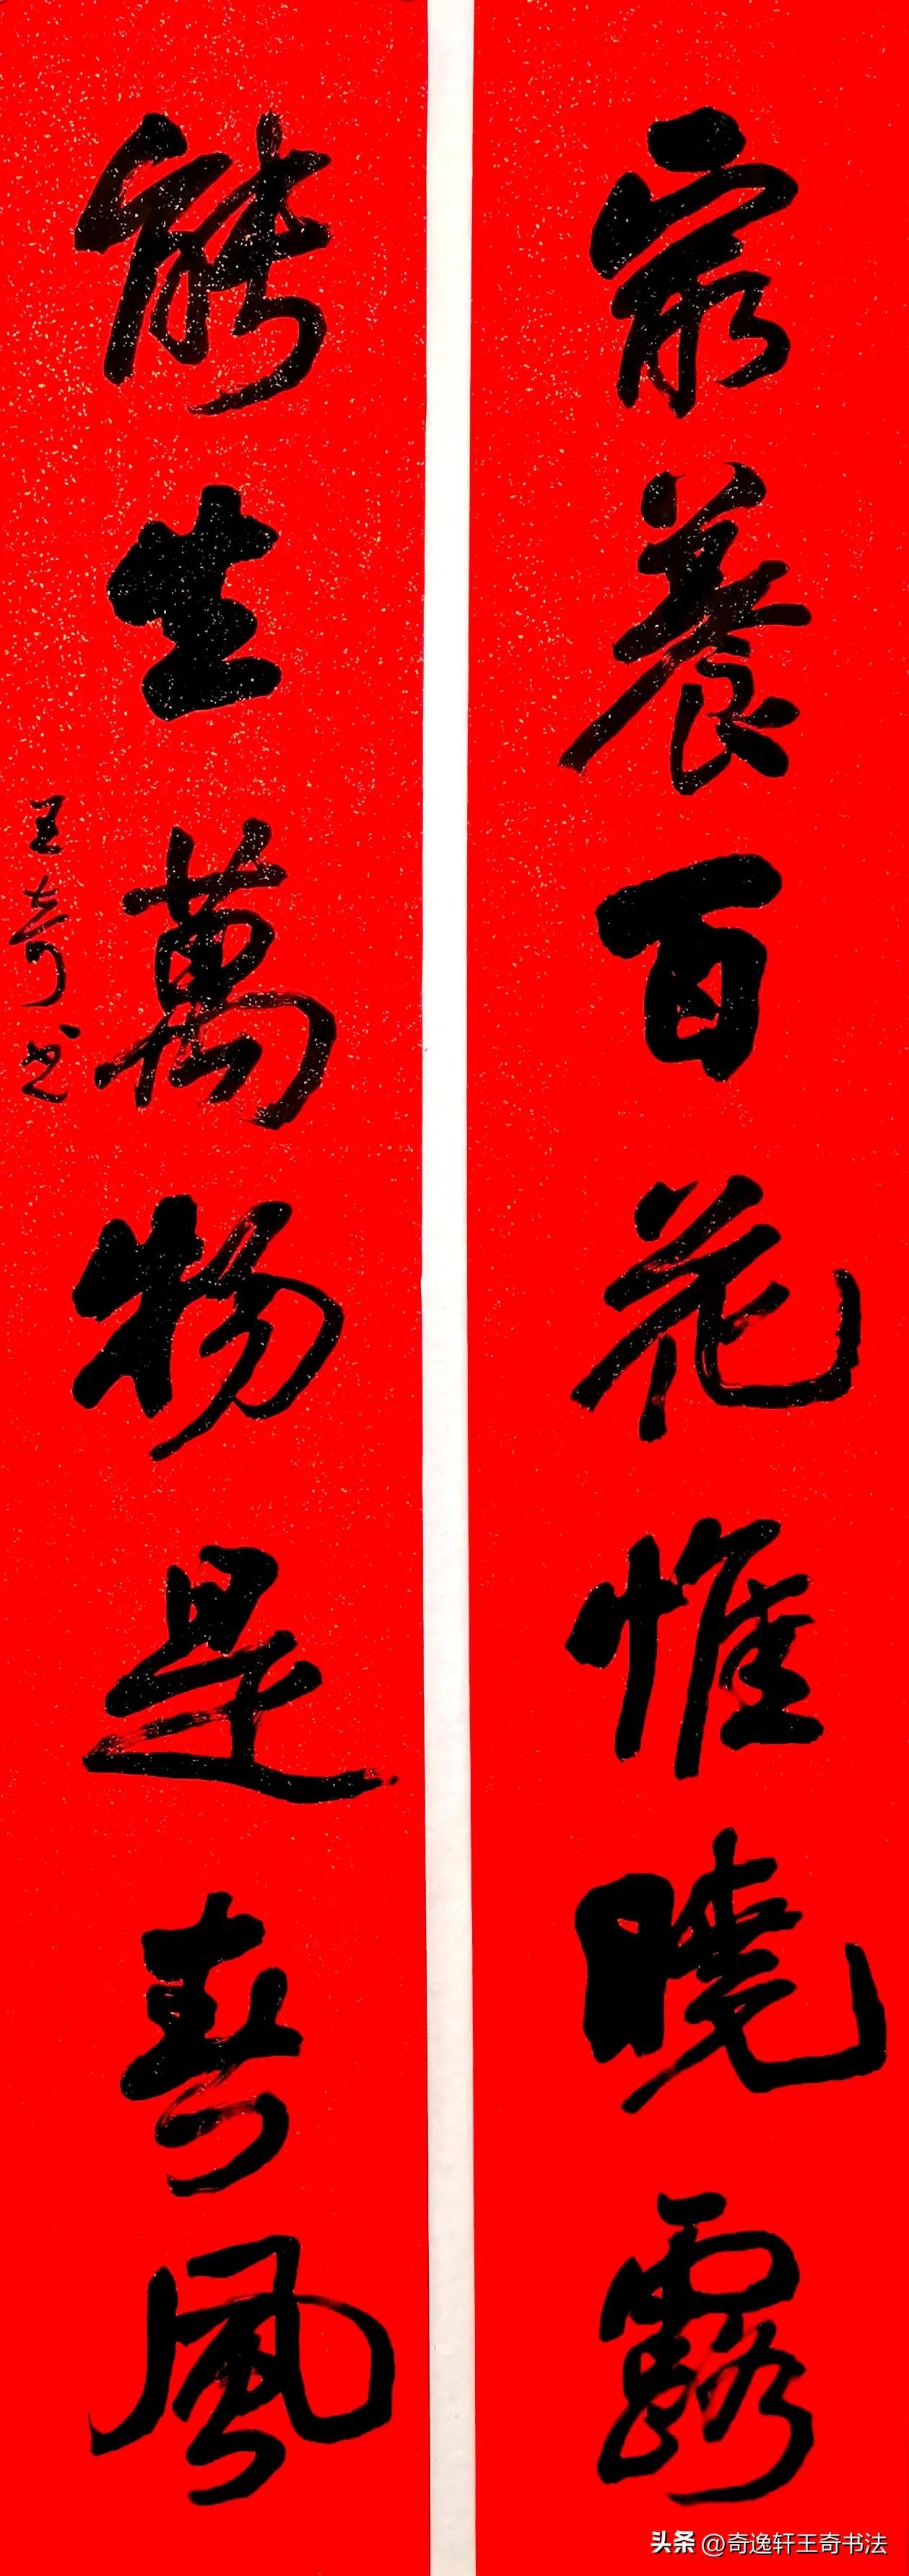 最養百花惟曉露
能生萬物是春風
王奇书
头条 @奇逸轩王奇书法